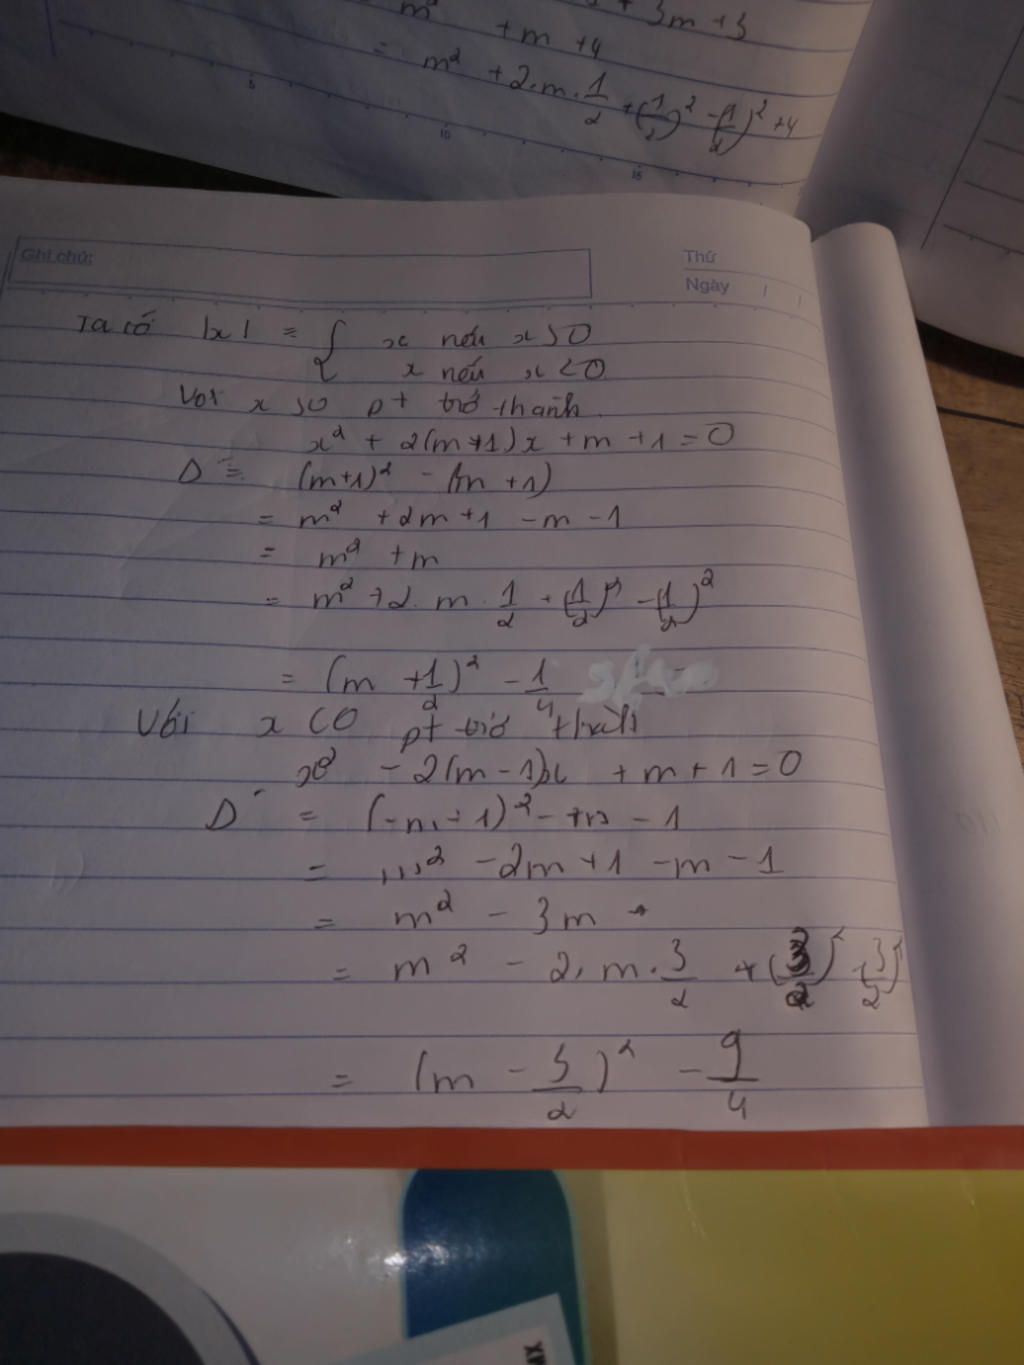 + 3m + 3
m² + m + 4
= m² + 2.m.1/2 + (1/2)² - (1/2)² + 4
5 10 15
Ghi chú:
Thứ
Ngày / /
Ta có |x| = { x nếu x ≥ 0
x nếu x < 0
Với x ≥ 0 pt trở thành
x² + 2(m+1)x + m + 1 = 0
Δ' = (m+1)² - (m + 1)
= m² + 2m + 1 - m - 1
= m² + m
= m² + 2. m . 1/2 + (1/2)² - (1/2)²
= (m + 1/2)² - 1/4
Với x < 0 pt trở thành
x² - 2(m - 1)x + m + 1 = 0
Δ' = (-m + 1)² - m - 1
= m² - 2m + 1 - m - 1
= m² - 3m
= m² - 2. m . 3/2 + (3/2)² - (3/2)²
= (m - 3/2)² - 9/4